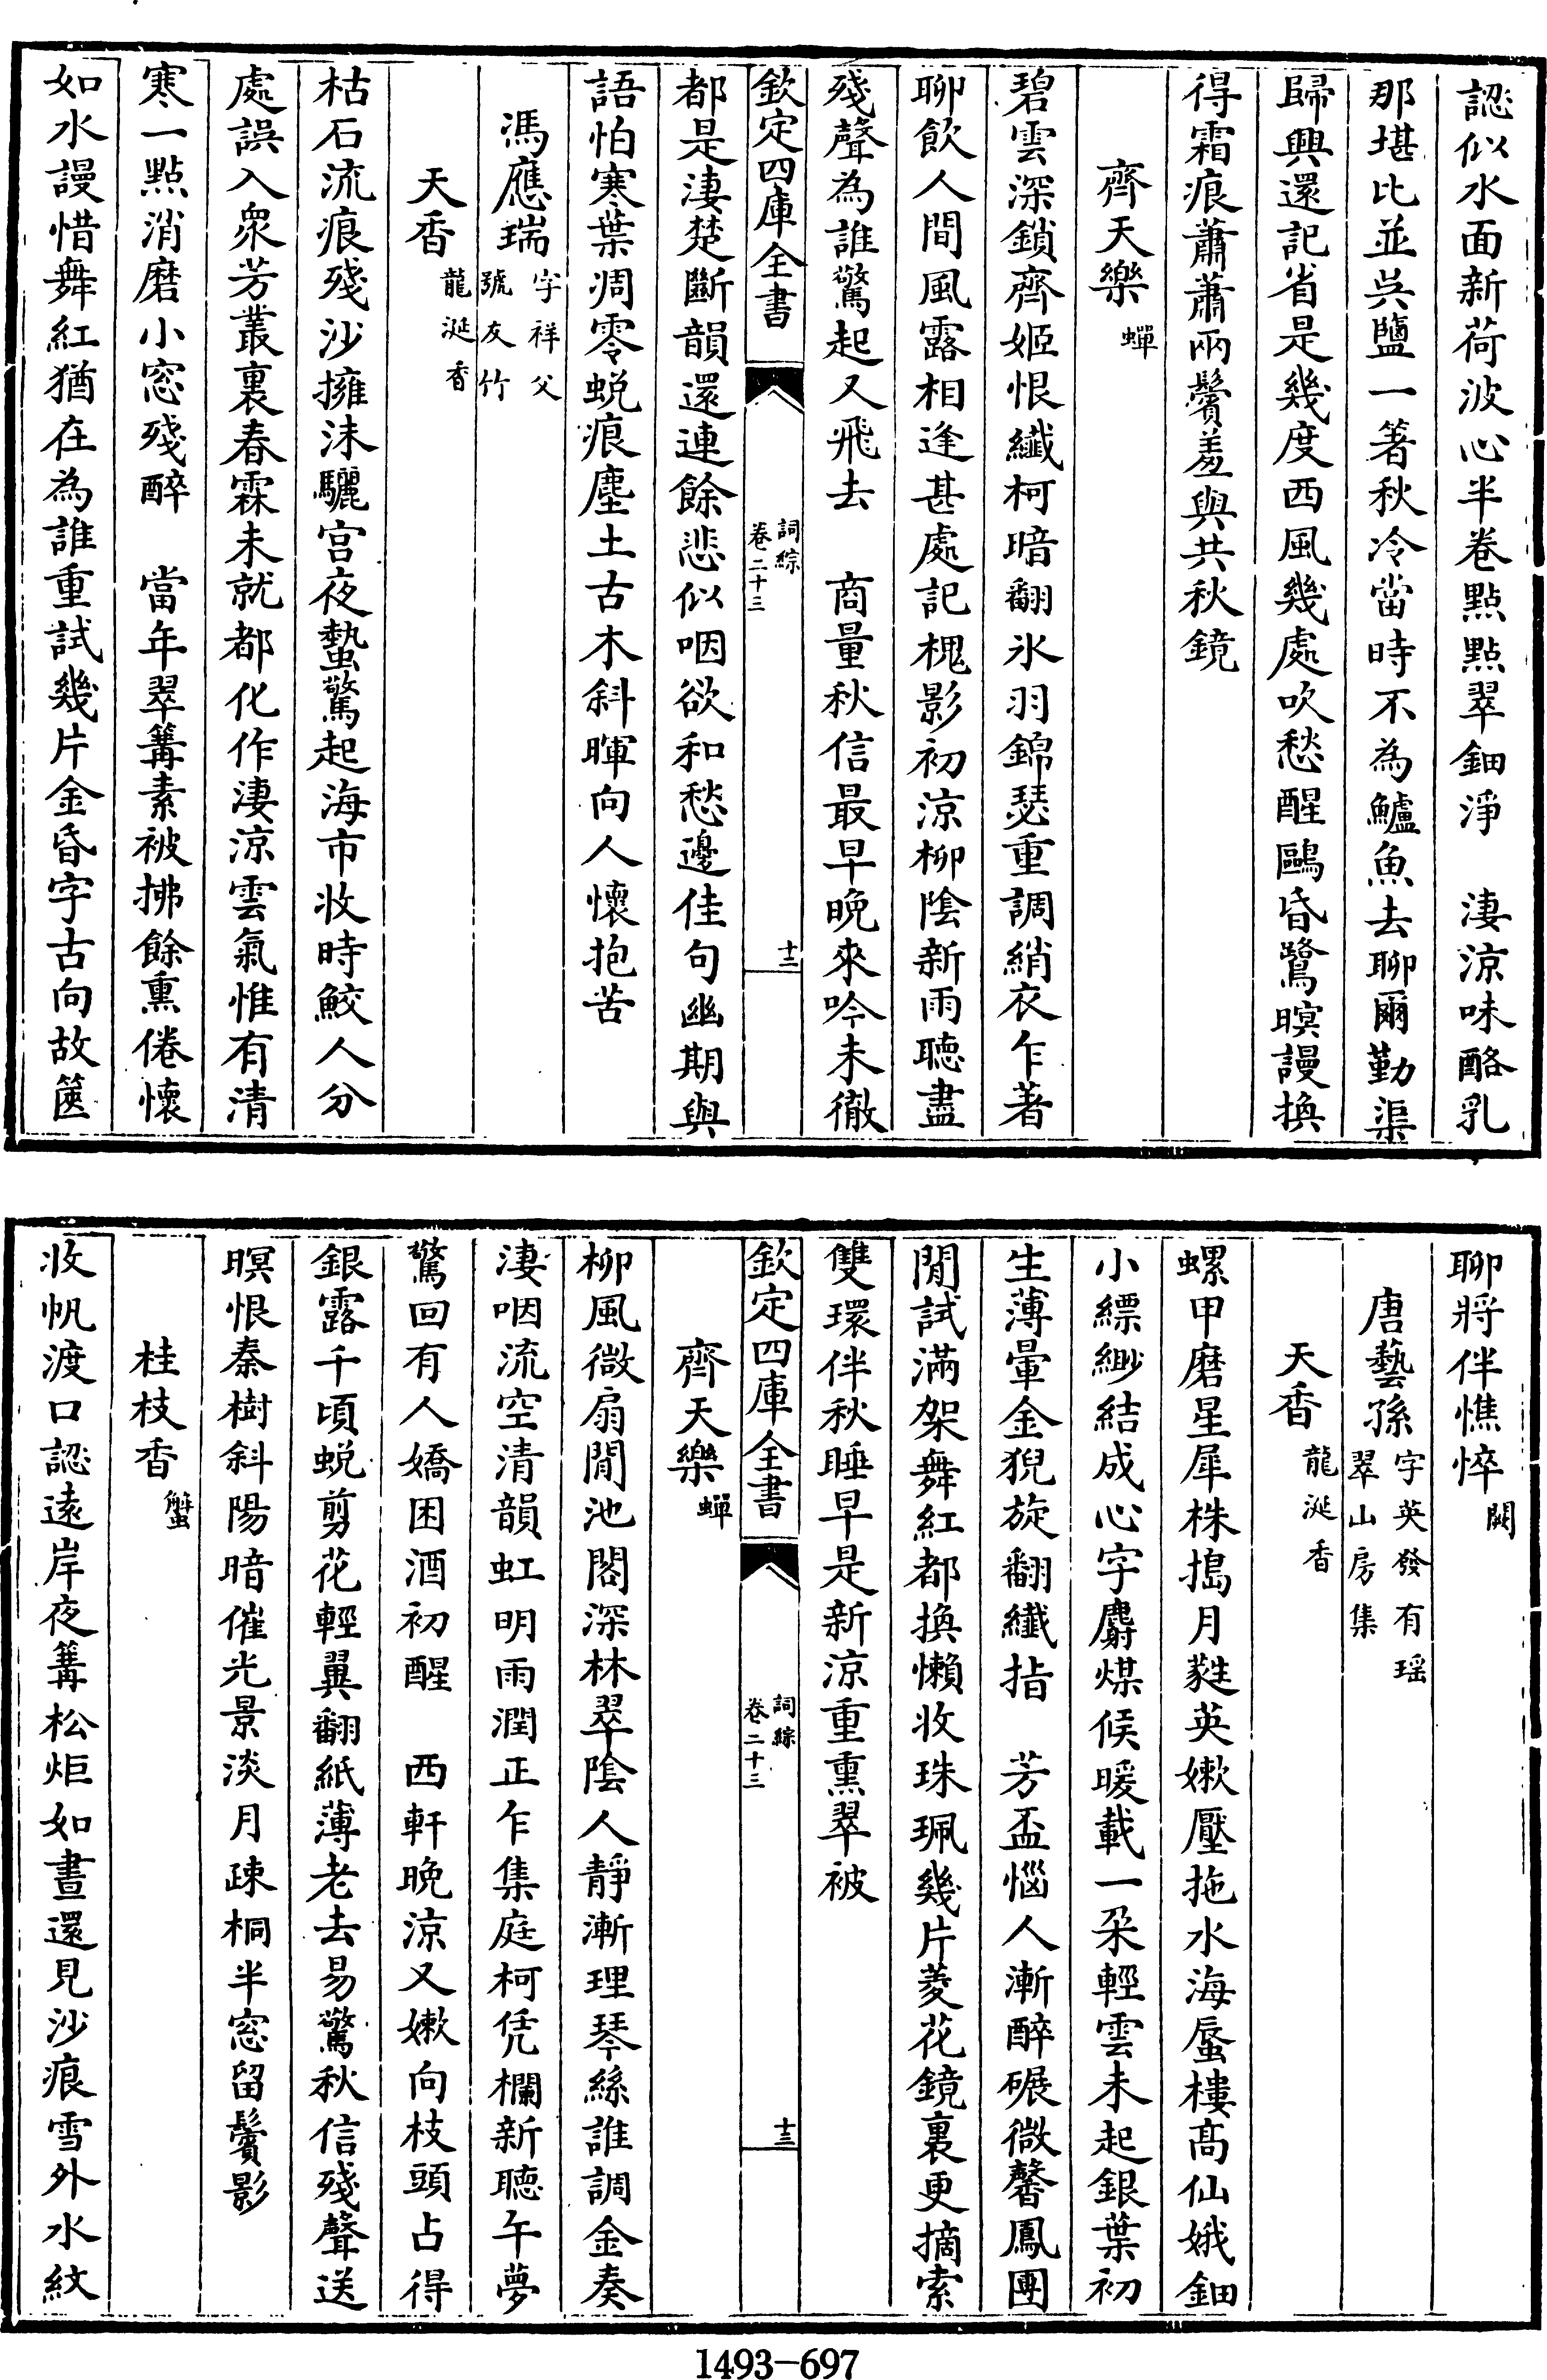 認似水面新荷波心半卷點點翠鈿淨　淒涼味酪乳
那堪比並吳鹽一箸秋冷當時不為鱸魚去聊爾勤渠
歸興還記省是幾度西風幾處吹愁醒鷗昏鷺暝謾換
得霜痕蕭蕭兩鬢羞與共秋鏡
齊天樂 蟬
碧雲深鎖齊姬恨纖柯暗翻氷羽錦瑟重調綃衣乍著
聊飲人間風露相逢甚處記槐影初涼柳陰新雨聽盡
殘聲為誰驚起又飛去　商量秋信最早晚來吟未徹
欽定四庫全書
詞綜
卷二十三
十二
都是淒楚斷韻還連餘悲似咽欲和愁邊佳句幽期與
語怕寒葉凋零蛻痕塵土古木斜暉向人懷抱苦
馮應瑞 字祥父
號友竹
天香 龍涎香
枯石流痕殘沙擁沫驪宮夜蟄驚起海市收時鮫人分
處誤入衆芳叢裏春霖未就都化作淒涼雲氣惟有清
寒一點消磨小窓殘醉　當年翠篝素被拂餘熏倦懷
如水謾惜舞紅猶在為誰重試幾片金昏字古向故篋
聊將伴憔悴 闕
唐藝孫 字英發有瑶
翠山房集
天香 龍涎香
螺甲磨星犀株搗月蕤英嫰壓拖水海蜃樓高仙娥鈿
小縹緲結成心字麝煤候暖載一朶輕雲未起銀葉初
生薄暈金猊旋翻纖指　芳盃惱人漸醉碾微馨鳳團
閒試滿架舞紅都換懶收珠珮幾片菱花鏡裏更摘索
雙環伴秋睡早是新涼重熏翠被
欽定四庫全書
詞綜
卷二十三
十三
齊天樂 蟬
柳風微扇閒池閣深林翠陰人靜漸理琴絲誰調金奏
淒咽流空清韻虹明雨潤正乍集庭柯凭欄新聽午夢
驚回有人嬌困酒初醒　西軒晚涼又嫰向枝頭占得
銀露千頃蛻剪花輕翼翻紙薄老去易驚秋信殘聲送
暝恨秦樹斜陽暗催光景淡月疎桐半窓留鬢影
桂枝香 蟹
收帆渡口認遠岸夜篝松炬如晝還見沙痕雪外水紋
1493-697